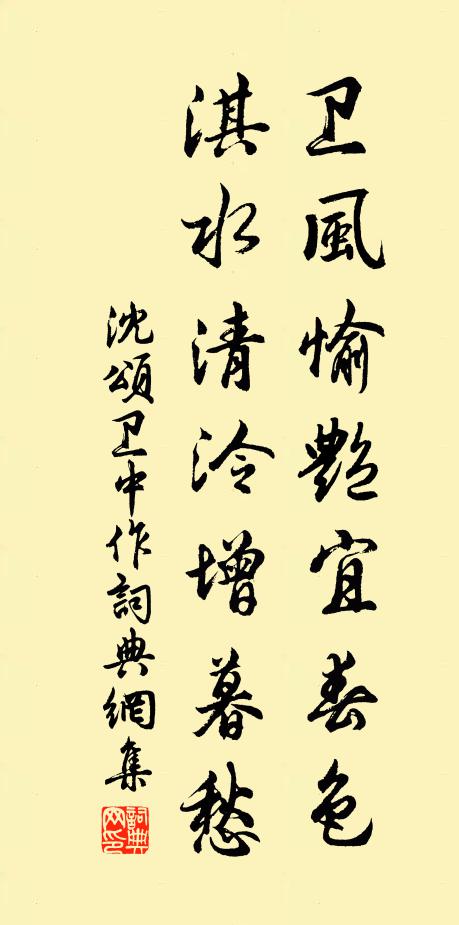 卫風愉艶宜春色
淇水清泠增暮愁
沈頌卫中作詞典網集
詞典网印